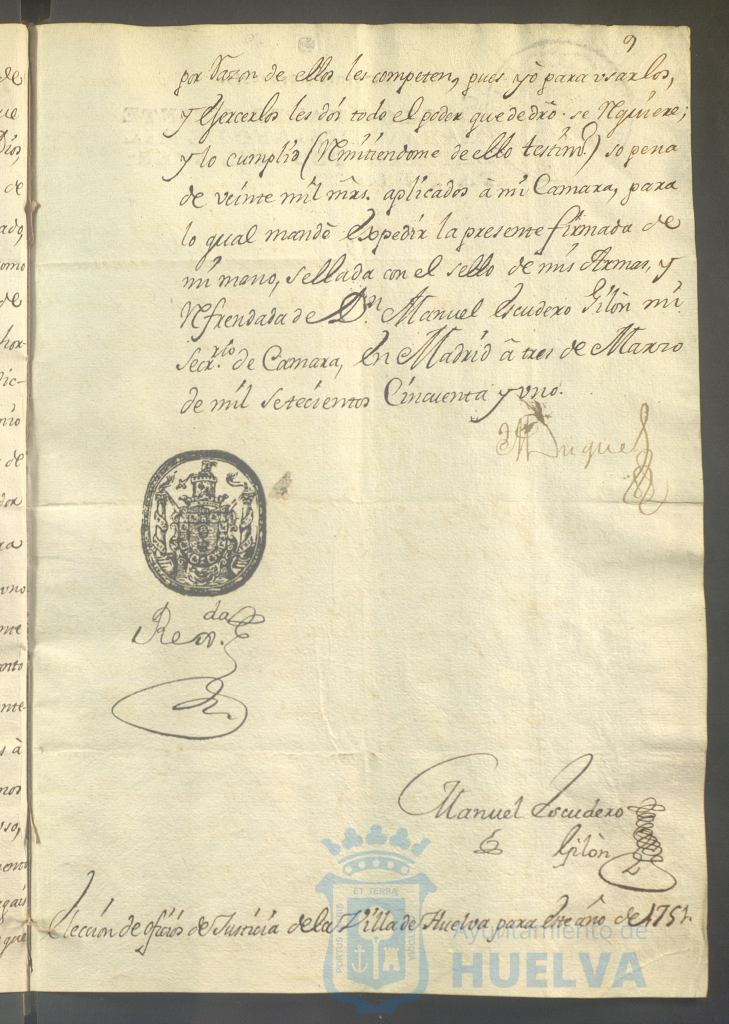 9
por Razon de ellos les competen, pues yo para usarlos,
y Exercerlos les doi todo el poder que de dro. se Rquiere;
y lo cumplid (Rmitiendome de ello testimo.) so pena
de veinte mil mrs. aplicados â mi Camara, para
lo qual mandè Expedir la presente firmada de
mi mano, sellada con el sello de mis Armas, y
Rfrendada de Dn. Manuel Escudero Gilòn mi
Secr.rio de Camara, En Madrid â tres de Marzo
de mil Setecientos Cinquenta y uno.
Duque
Manuel Escudero
Gilòn
Elección de oficios de Justicia de la Villa de Huelva para Este año de 1751.
ET TERRAE
PORTUS MARIS
CUSTODIA
Ayuntamiento de
HUELVA